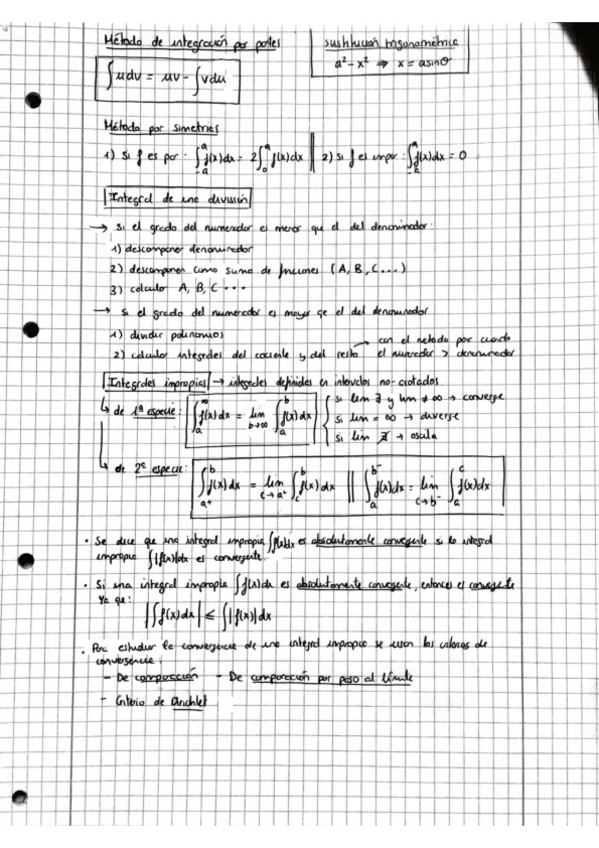 Método de integración por partes
∫udv = uv - ∫vdu
sustitución trigonométrica
a² - x² ⇒ x = a sinθ
Método por simetrías
1) Si f es par : ∫₋ₐᵃ f(x)dx = 2∫₀ᵃ f(x)dx || 2) si f es impar : ∫₋ₐᵃ f(x)dx = 0
Integral de una división
→ Si el grado del numerador es menor que el del denominador:
1) descomponer denominador
2) descomponer como suma de fracciones (A, B, C...)
3) calcular A, B, C ...
→ Si el grado del numerador es mayor qe el del denominador
1) dividir polinomios
2) calcular integrales del cociente y del resto → con el metodo por cuando
el numerador > denominador
Integrales impropias → integrales definidas en intervalos no-acotados
→ de 1ª especie : ∫ₐ^∞ f(x)dx = lim b→∞ ∫ₐᵇ f(x)dx
si lim ∃ y lim ≠ ∞ → converge
si lim = ∞ → diverge
si lim ∄ → oscila
→ de 2ª especie : ∫ₐ₊ᵇ f(x)dx = lim c→a⁺ ∫_cᵇ f(x)dx || ∫ₐ^b⁻ f(x)dx = lim c→b⁻ ∫ₐᶜ f(x)dx
· Se dice que una integral impropia ∫f(x)dx es absolutamente convergente si la integral
impropia ∫|f(x)|dx es convergente.
· Si una integral impropia ∫f(x)dx es absolutamente convergente, entonces es convergente
ya que:
|∫f(x)dx| ≤ ∫|f(x)|dx
· Para estudiar la convergencia de una integral impropia se usan los criterios de
convergencia :
- De comparación - De comparación por paso al límite
- Criterio de Dirichlet